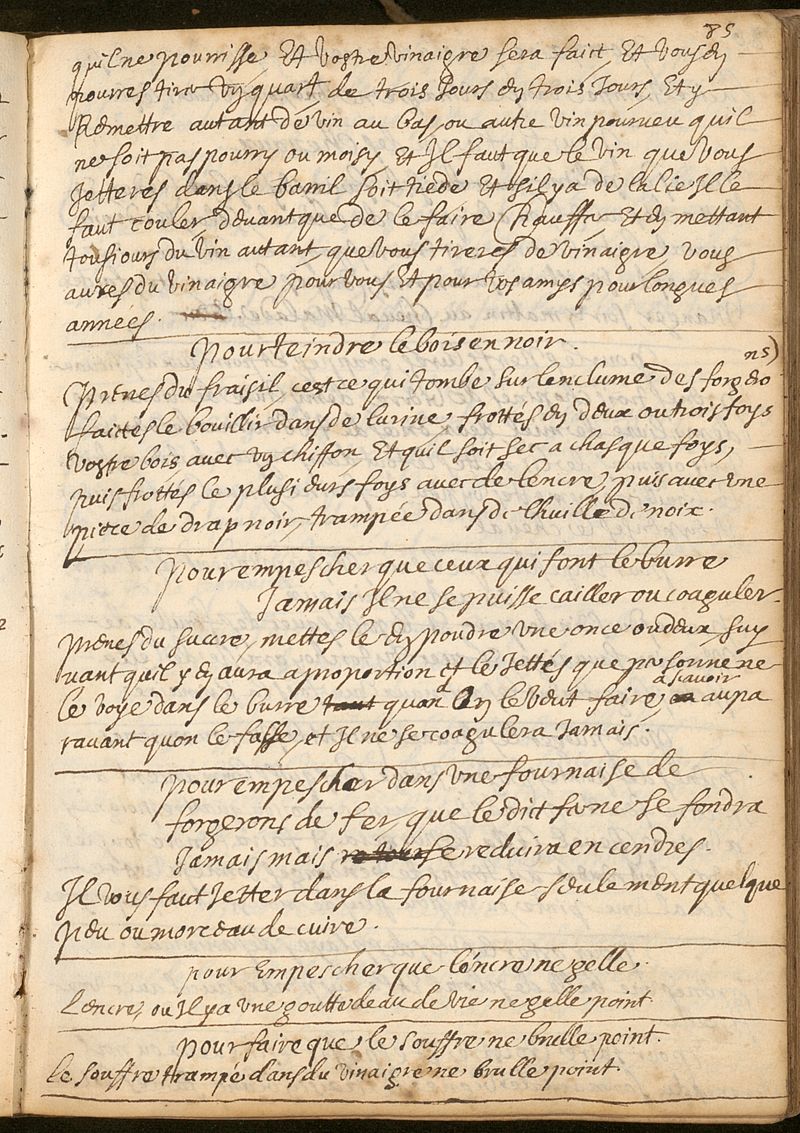 85
quil ne pourrisse Et vostre vinaigre sera faict, Et vous en
pourres tirer un quart de trois Jours en trois Jours, Et y
Remettre autant de vin au bas, ou autre vin pourveu quil
ne soit pas pourry ou moisy, Et Il faut que le vin que vous
Jetteres dans le barril soit tiede Et sil y a de la lie Il le
faut couler devant que de le faire Chauffer Et en mettant
tousiours du vin autant, que vous tireres de vinaigre, vous
aures du vinaigre pour vous Et pour vos amys pour longues
annees.
Pour teindre le bois en noir.
Prenes du fraisil, cest ce qui tombe sur lenclume des forgero
ns)
faittes le bouillir dans de lurine frottés en deux ou trois foys
vostre bois avec un chiffon, Et quil soit sec a chasque foys,
puis frottes le plusieurs foys avec de lencre, puis avec une
piece de drap noir, trampée dans de lhuille de noix.
Pour empescher que ceux qui font le burre
Jamais Il ne se puisse cailler ou coaguler.
Prenes du succre, mettes le en poudre une once ou deux, suy
vant quil y en aura a proportion et le Jettés que personne ne
le voye dans le burre quan lon le veut faire, a scavoir aupa
ravant quon le fasse, et Il ne se coagulera Jamais.
Pour empescher dans une fournaise de
forgerons de fer, que le dict fer ne se fondra
Jamais mais se reduira en cendres.
Il vous faut Jetter dans la fournaise seulement quelque
peu ou morceau de cuire.
pour Empescher que lencre ne gelle.
Lencre, ou Il y a une goutte deau de vie ne gelle point.
pour faire que le souffre ne brulle point.
le souffre trampé dans du vinaigre ne brulle point.